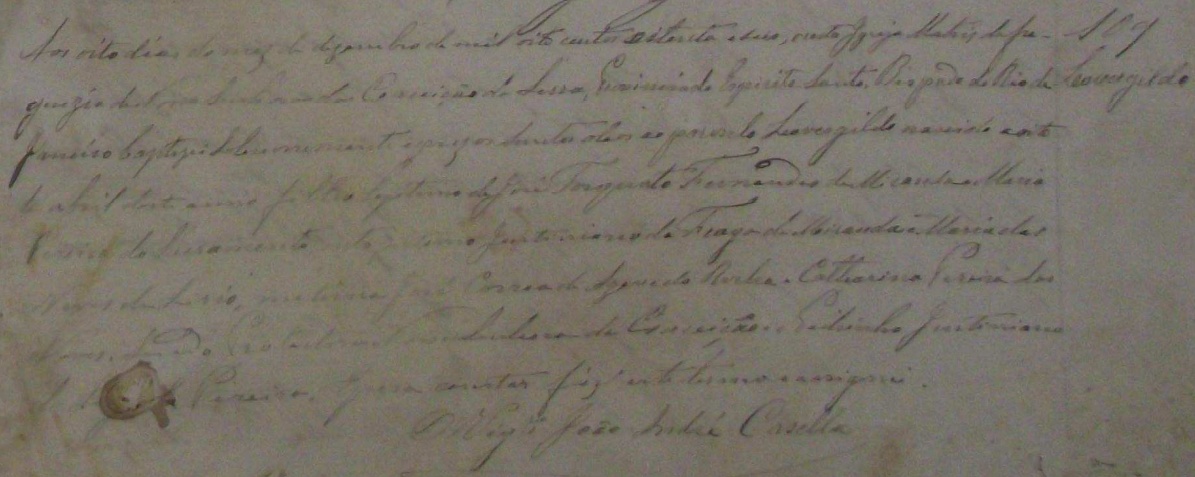 Aos oito dias do mez de dezembro de mil oito centos e setenta e seis, nesta Igreja Matriz da fre- 107
guezia de Nossa Senhora da Conceição da Serra, Provincia do Espirito Santo, Bispado do Rio de Leovergildo
Janeiro baptizei solemnemente e puz os Santos oleos ao parvulo Leovergildo nascido a oito
de abril deste anno filho legitimo de José Torquato Fernandes de Miranda e Maria
Pereira do Sacramento, neto Justiniano de Fraga de Miranda e Maria das
Neves de, materna José Correa de Azevedo Rocha e Catharina Pereira das
Neves. Senhora da Conceição e Padrinho Justiniano
Pereira. E para constar fiz este termo e assignei.
O Vigº João André Casella